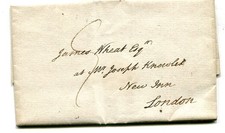 James Wheat Esqr
at Mr Joseph Knowles
New Inn
London